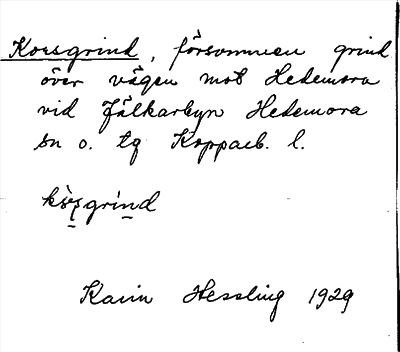 Korsgrind, försvunnen grind
över vägen mot Hedemora
vid Jälkarbyn Hedemora
sn o. tg Koppaeb. l.
Karin Hessling 1929